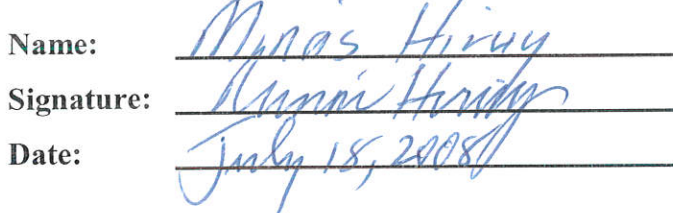 Name: Minas Hiruy
Signature:
Date: July 18, 2008